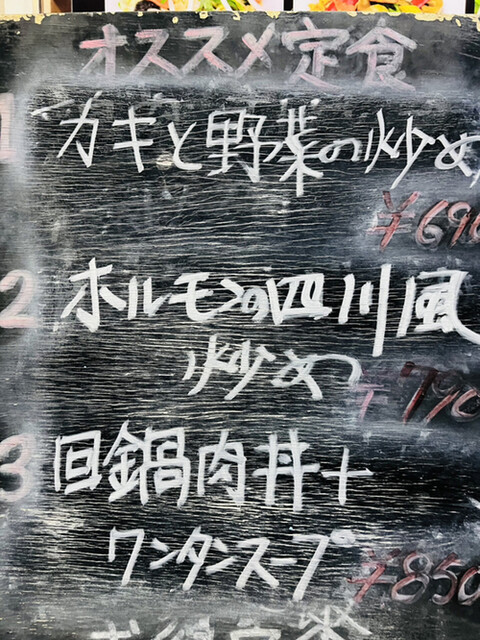 オススメ定食
1 カキと野菜の炒め
¥690
2 ホルモンの四川風
炒め
¥790
3 回鍋肉丼+
ワンタンスープ
¥850